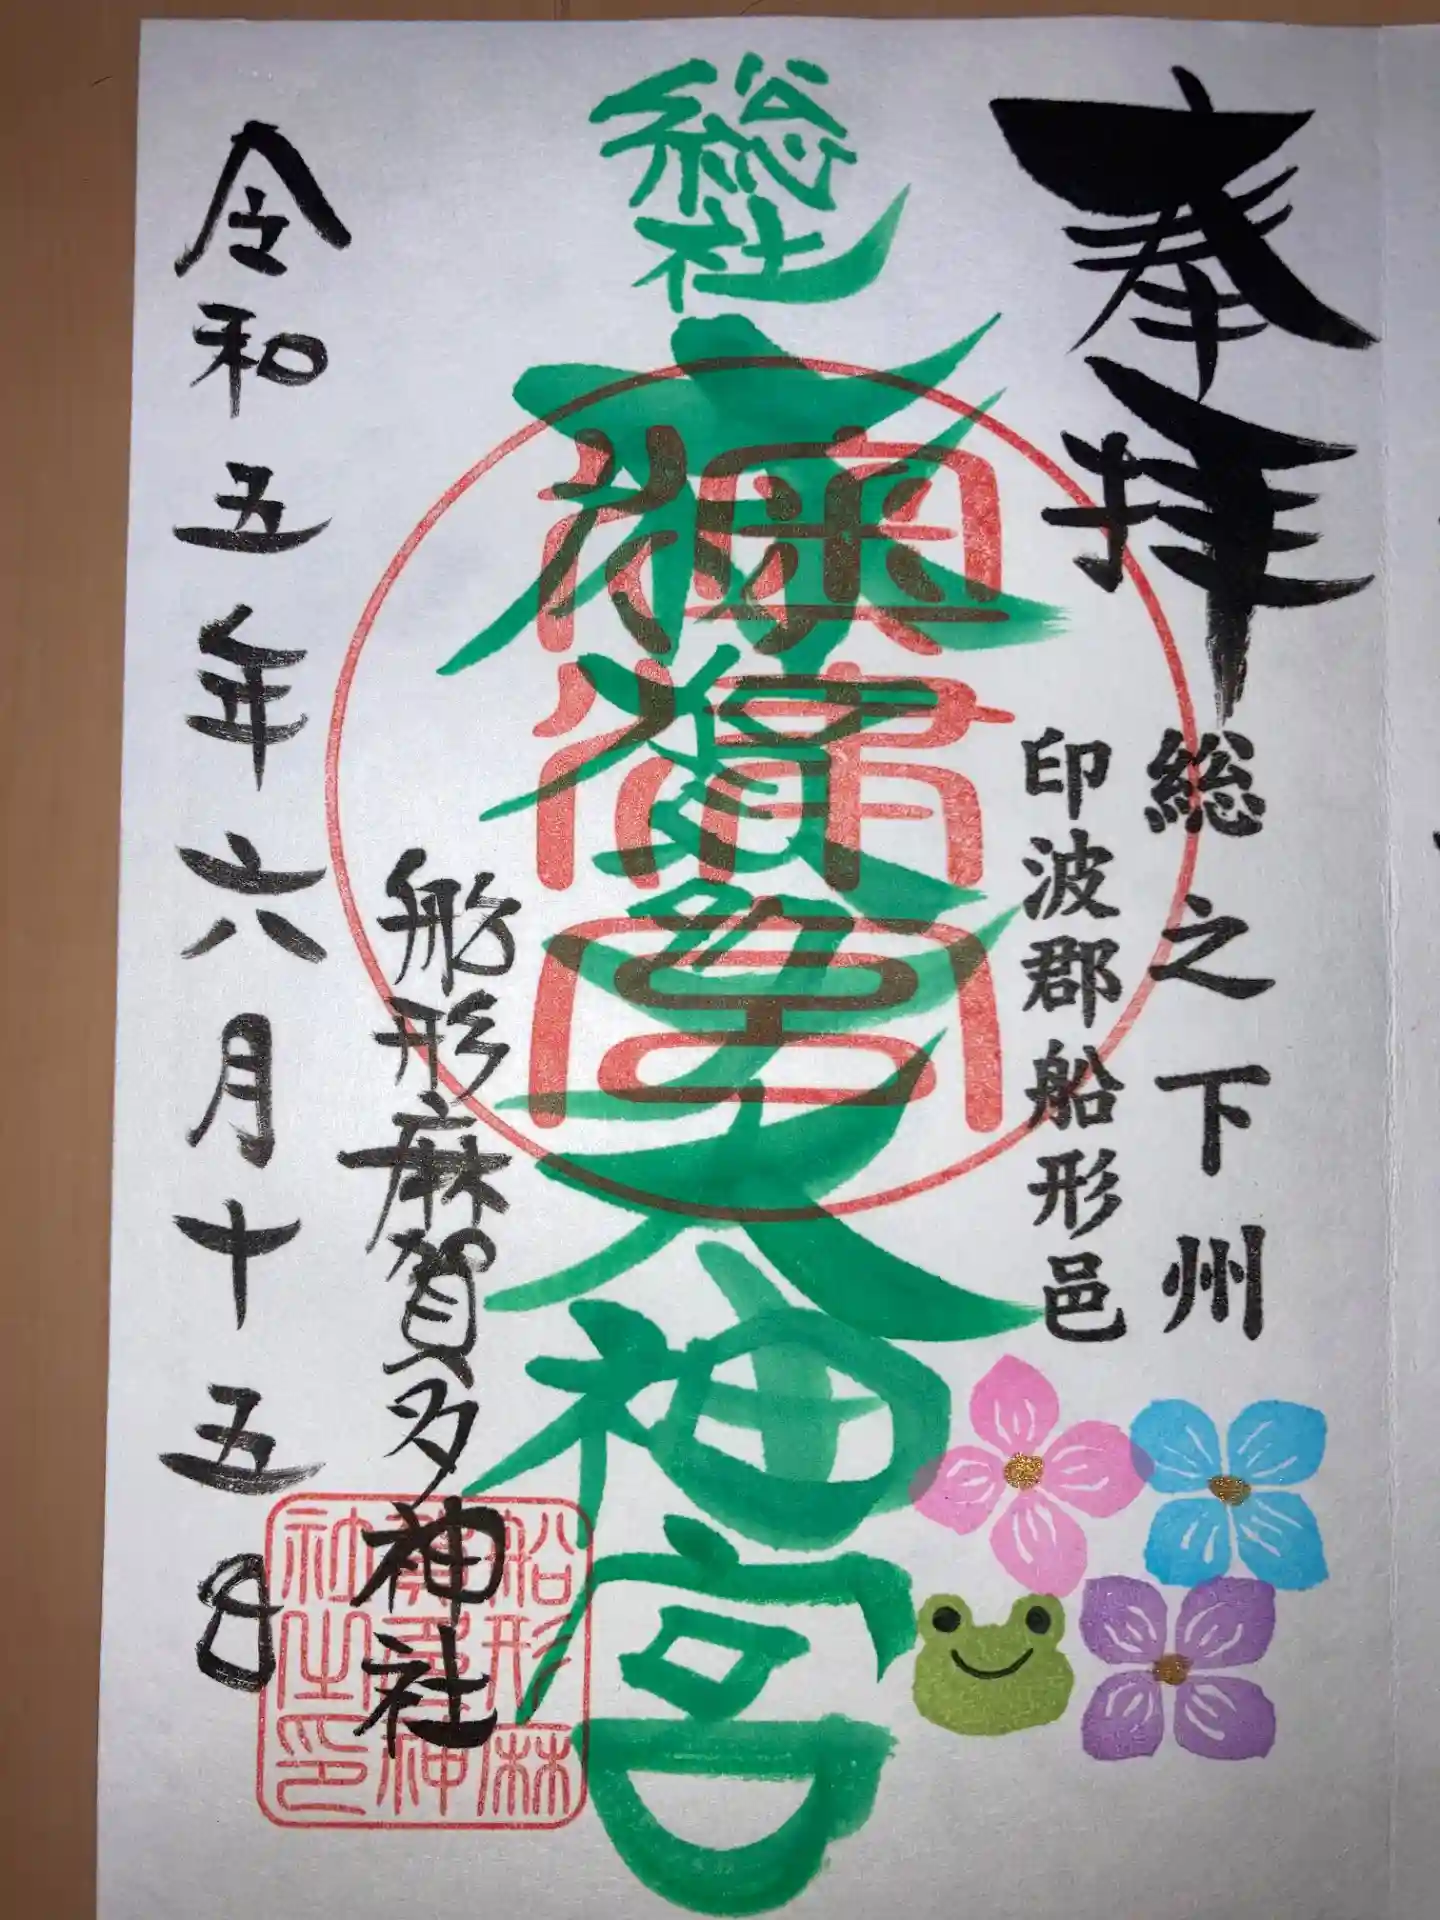 奉拝
総之下州
印波郡船形邑
総社
麻賀多大神宮
船形麻賀多神社
令和五年六月十五日
船形麻
賀多神
社之印